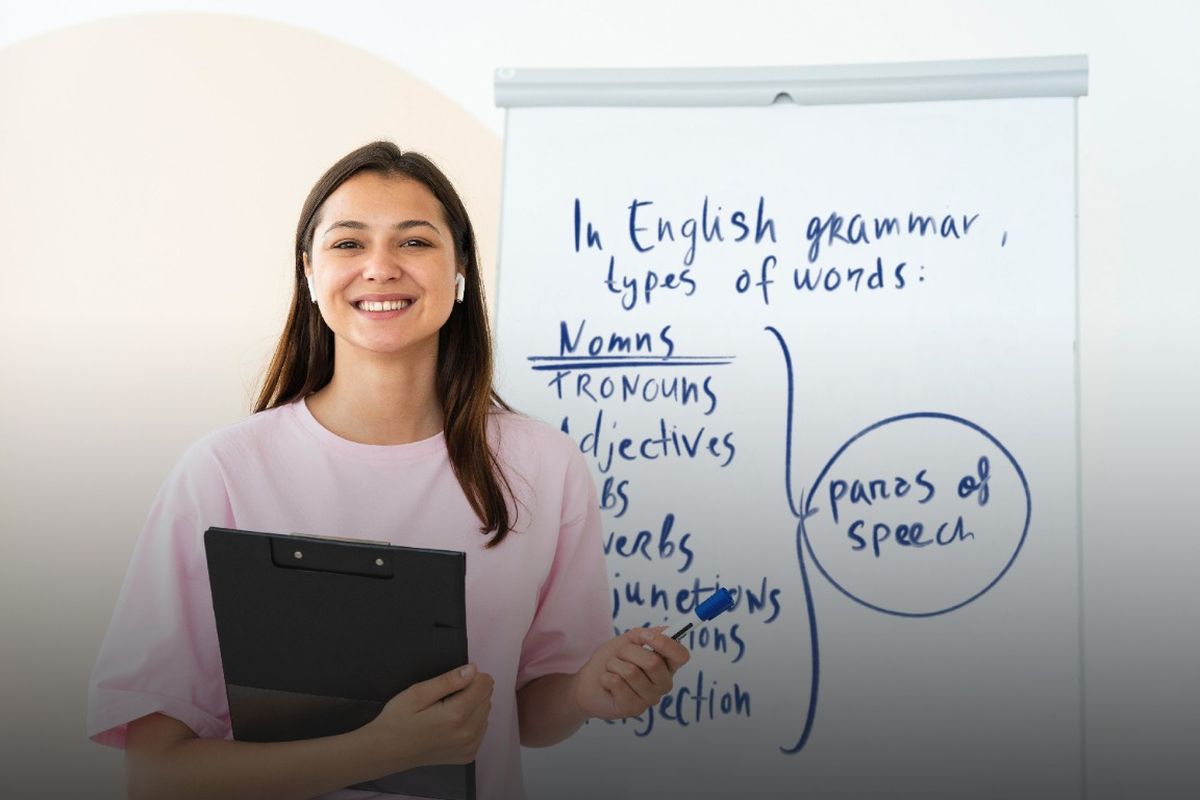 In English grammar,
types of words:
Nomns
PRONOUNS
Adjectives
BS
verbs
junctions
itions
jection
parts of
speech